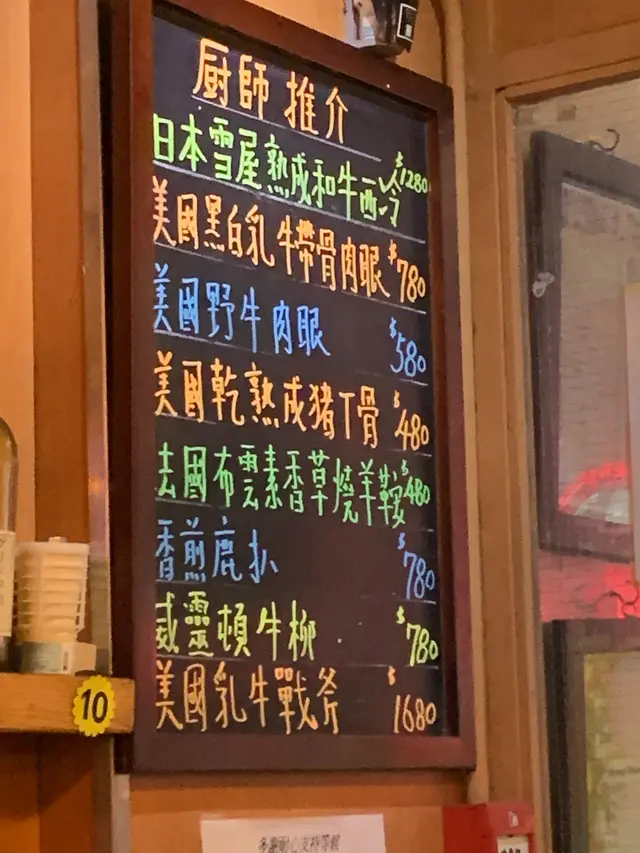 厨師推介
日本雪屋熟成和牛西冷 $1280
美國黑白乳牛帶骨肉眼 $780
美國野牛肉眼 $580
美國乾熟成豬T骨 $480
法國布雲素香草燒羊鞍 $480
香煎鹿扒 $780
威靈頓牛柳 $780
美國乳牛戰斧 $1680
10